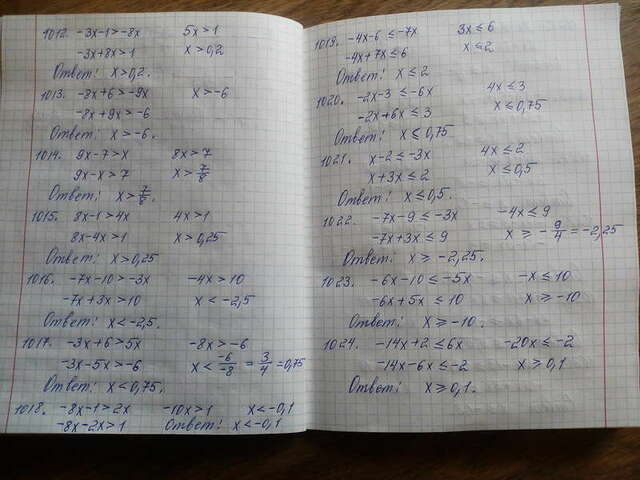 1012. -3x-1>-8x 5x>1
-3x+8x>1 x>0,2
Ответ: x>0,2.
1013. -8x+6>-9x x>-6
-8x+9x>-6
Ответ: x>-6.
1014. 9x-7>x 8x>7
9x-x>7 x>7/8
Ответ: x>7/8.
1015. 8x-1>4x 4x>1
8x-4x>1 x>0,25
Ответ: x>0,25
1016. -7x-10>-3x -4x>10
-7x+3x>10 x<-2,5
Ответ: x<-2,5.
1017. -3x+6>5x -8x>-6
-3x-5x>-6 x<-6/-8=3/4=0,75
Ответ: x<0,75.
1018. -8x-1>2x -10x>1 x<-0,1
-8x-2x>1 Ответ: x<-0,1
1019. -4x-6≤-7x 3x≤6
-4x+7x≤6 x≤2
Ответ: x≤2
1020. -2x-3≤-6x 4x≤3
-2x+6x≤3 x≤0,75
Ответ: x≤0,75
1021. x-2≤-3x 4x≤2
x+3x≤2 x≤0,5
Ответ: x≤0,5.
1022. -7x-9≤-3x -4x≤9
-7x+3x≤9 x≥-9/4=-2,25
Ответ: x≥-2,25.
1023. -6x-10≤-5x -x≤10
-6x+5x≤10 x≥-10
Ответ: x≥-10.
1024. -14x+2≤6x -20x≤-2
-14x-6x≤-2 x≥0,1
Ответ: x≥0,1.